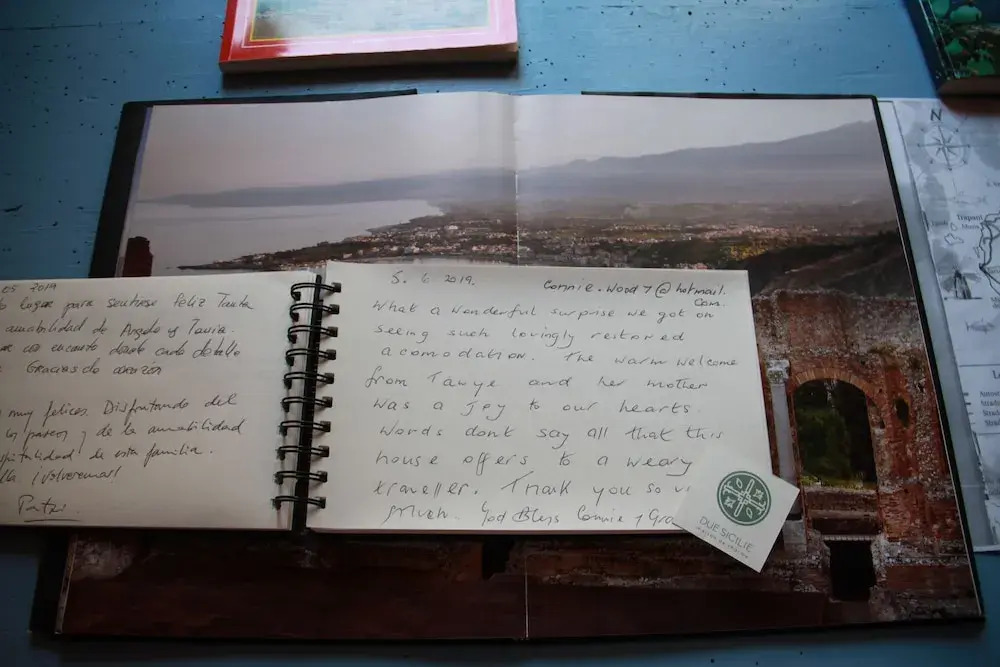 05 2019
lugar para sentirse Feliz Tanta
amabilidad de Angelo y Tania.
encanto desde cada detalle
Gracias de corazon
muy felices. Disfrutando del
y de la amabilidad
de esta familia.
¡Volveremos!
Patri
5. 6 2019.
Connie.Wood7@hotmail.
com.
What a wonderful surprise we got on
seeing such lovingly restored
acomodation. The warm welcome
from Tanye and her mother
was a joy to our hearts.
Words dont say all that this
house offers to a weary
traveller. Thank you so
Much. God Bless Connie
DUE SICILIE
N
Trapani